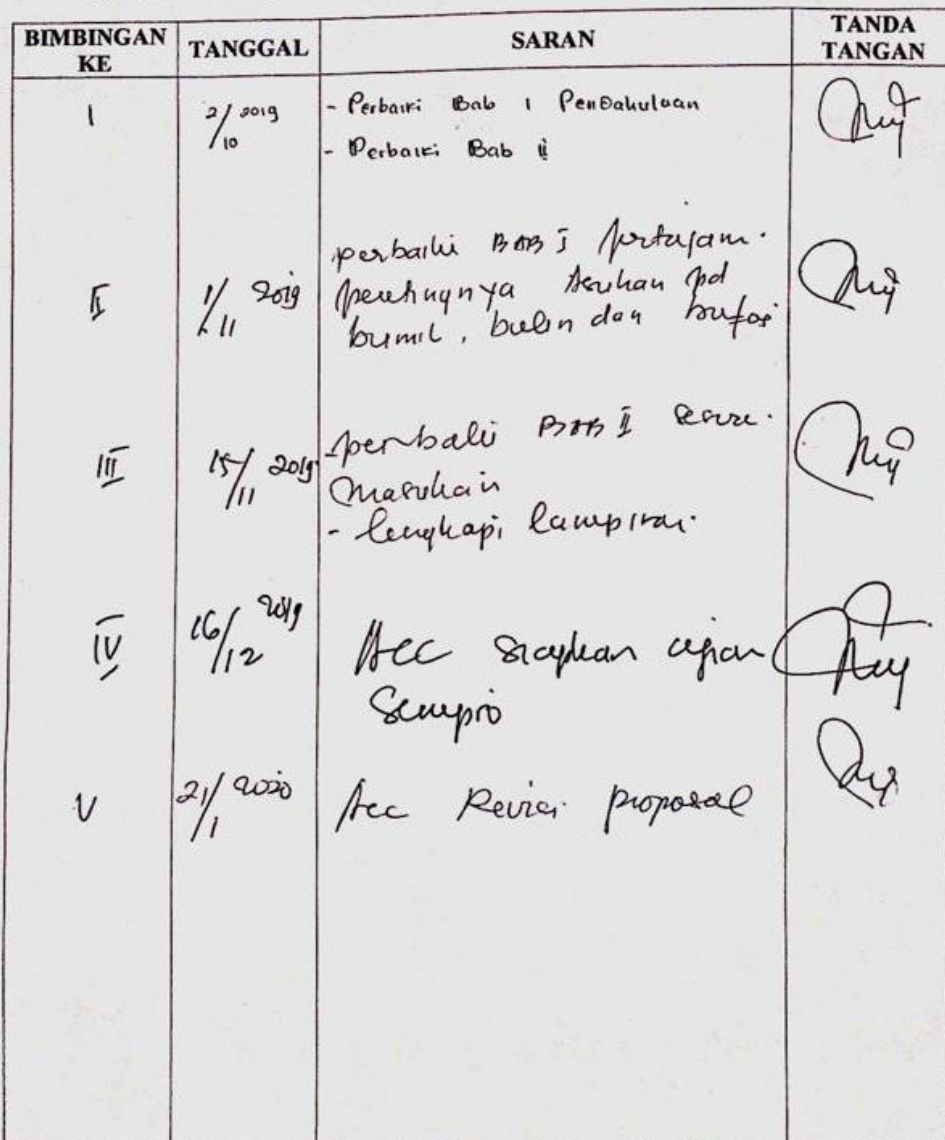 BIMBINGAN KE TANGGAL SARAN TANDA TANGAN
I 2/10 2019 - Perbaiki Bab 1 Pendahuluan
- Perbaiki Bab ii
II 1/11 2019 perbaiki BAB I pertajam
pentingnya Asuhan pd
bumil, bulin dan bufas
III 15/11 2019 - perbaiki BAB I sesuai
masukan
- lengkapi lampiran
IV 16/12 2019 Acc siapkan ujian
Sempro
V 21/1 2020 Acc Revisi proposal